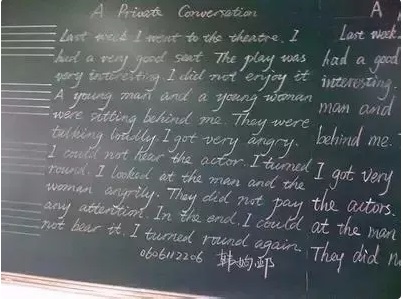 A Private Conversation
Last week I went to the theatre. I
had a very good seat. The play was
very interesting. I did not enjoy it
A young man and a young woman
were sitting behind me. They were
talking loudly. I got very angry.
I could not hear the actor. I turned
round. I looked at the man and the
woman angrily. They did not pay
any attention. In the end. I could
not bear it. I turned round again.
0606112206
A
Last week
had a good
interesting.
man and
behind me.
I got very
the actors.
at the man
They did n